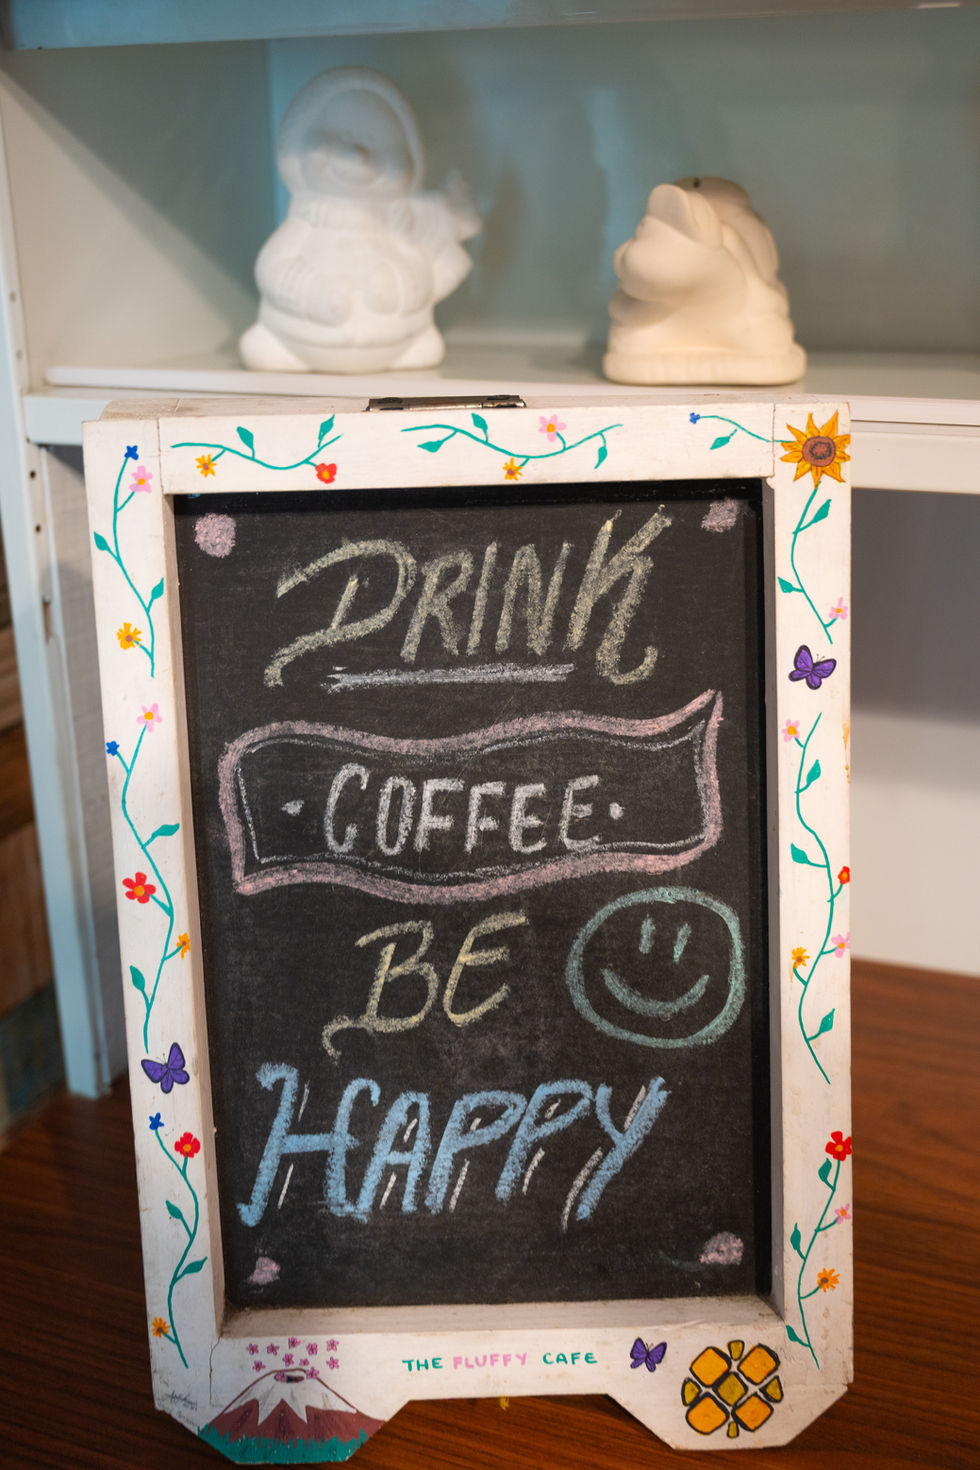 DRINK
· COFFEE ·
BE
HAPPY
THE FLUFFY CAFE